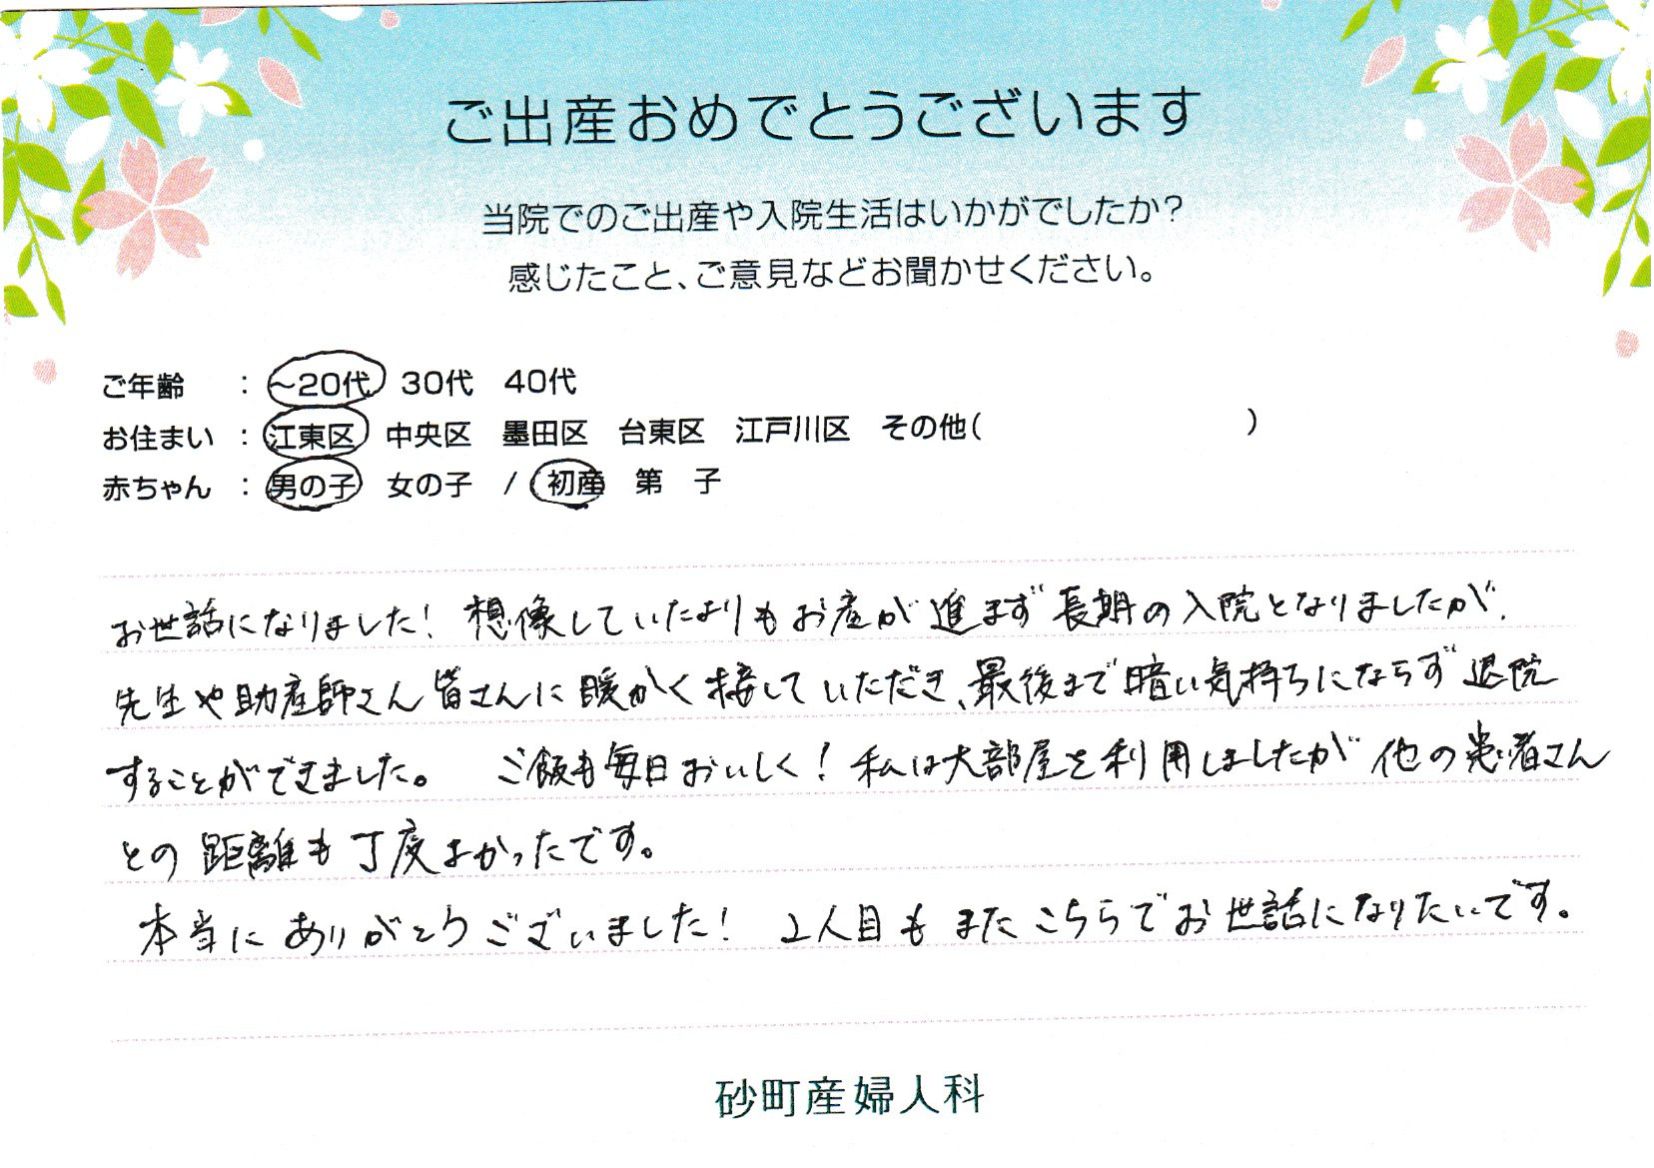 ご出産おめでとうございます
当院でのご出産や入院生活はいかがでしたか？
感じたこと、ご意見などお聞かせください。
ご年齢 : ～20代 30代 40代
お住まい : 江東区 中央区 墨田区 台東区 江戸川区 その他( )
赤ちゃん : 男の子 女の子 / 初産 第 子
お世話になりました！ 想像していたよりもお産が進まず長期の入院となりましたが、
先生や助産師さん皆さんに暖かく接していただき、最後まで暗い気持ちにならず退院
することができました。 ご飯も毎日おいしく！私は大部屋を利用しましたが他の患者さん
との距離も丁度よかったです。
本当にありがとうございました！ 2人目もまたこちらでお世話になりたいです。
砂町産婦人科